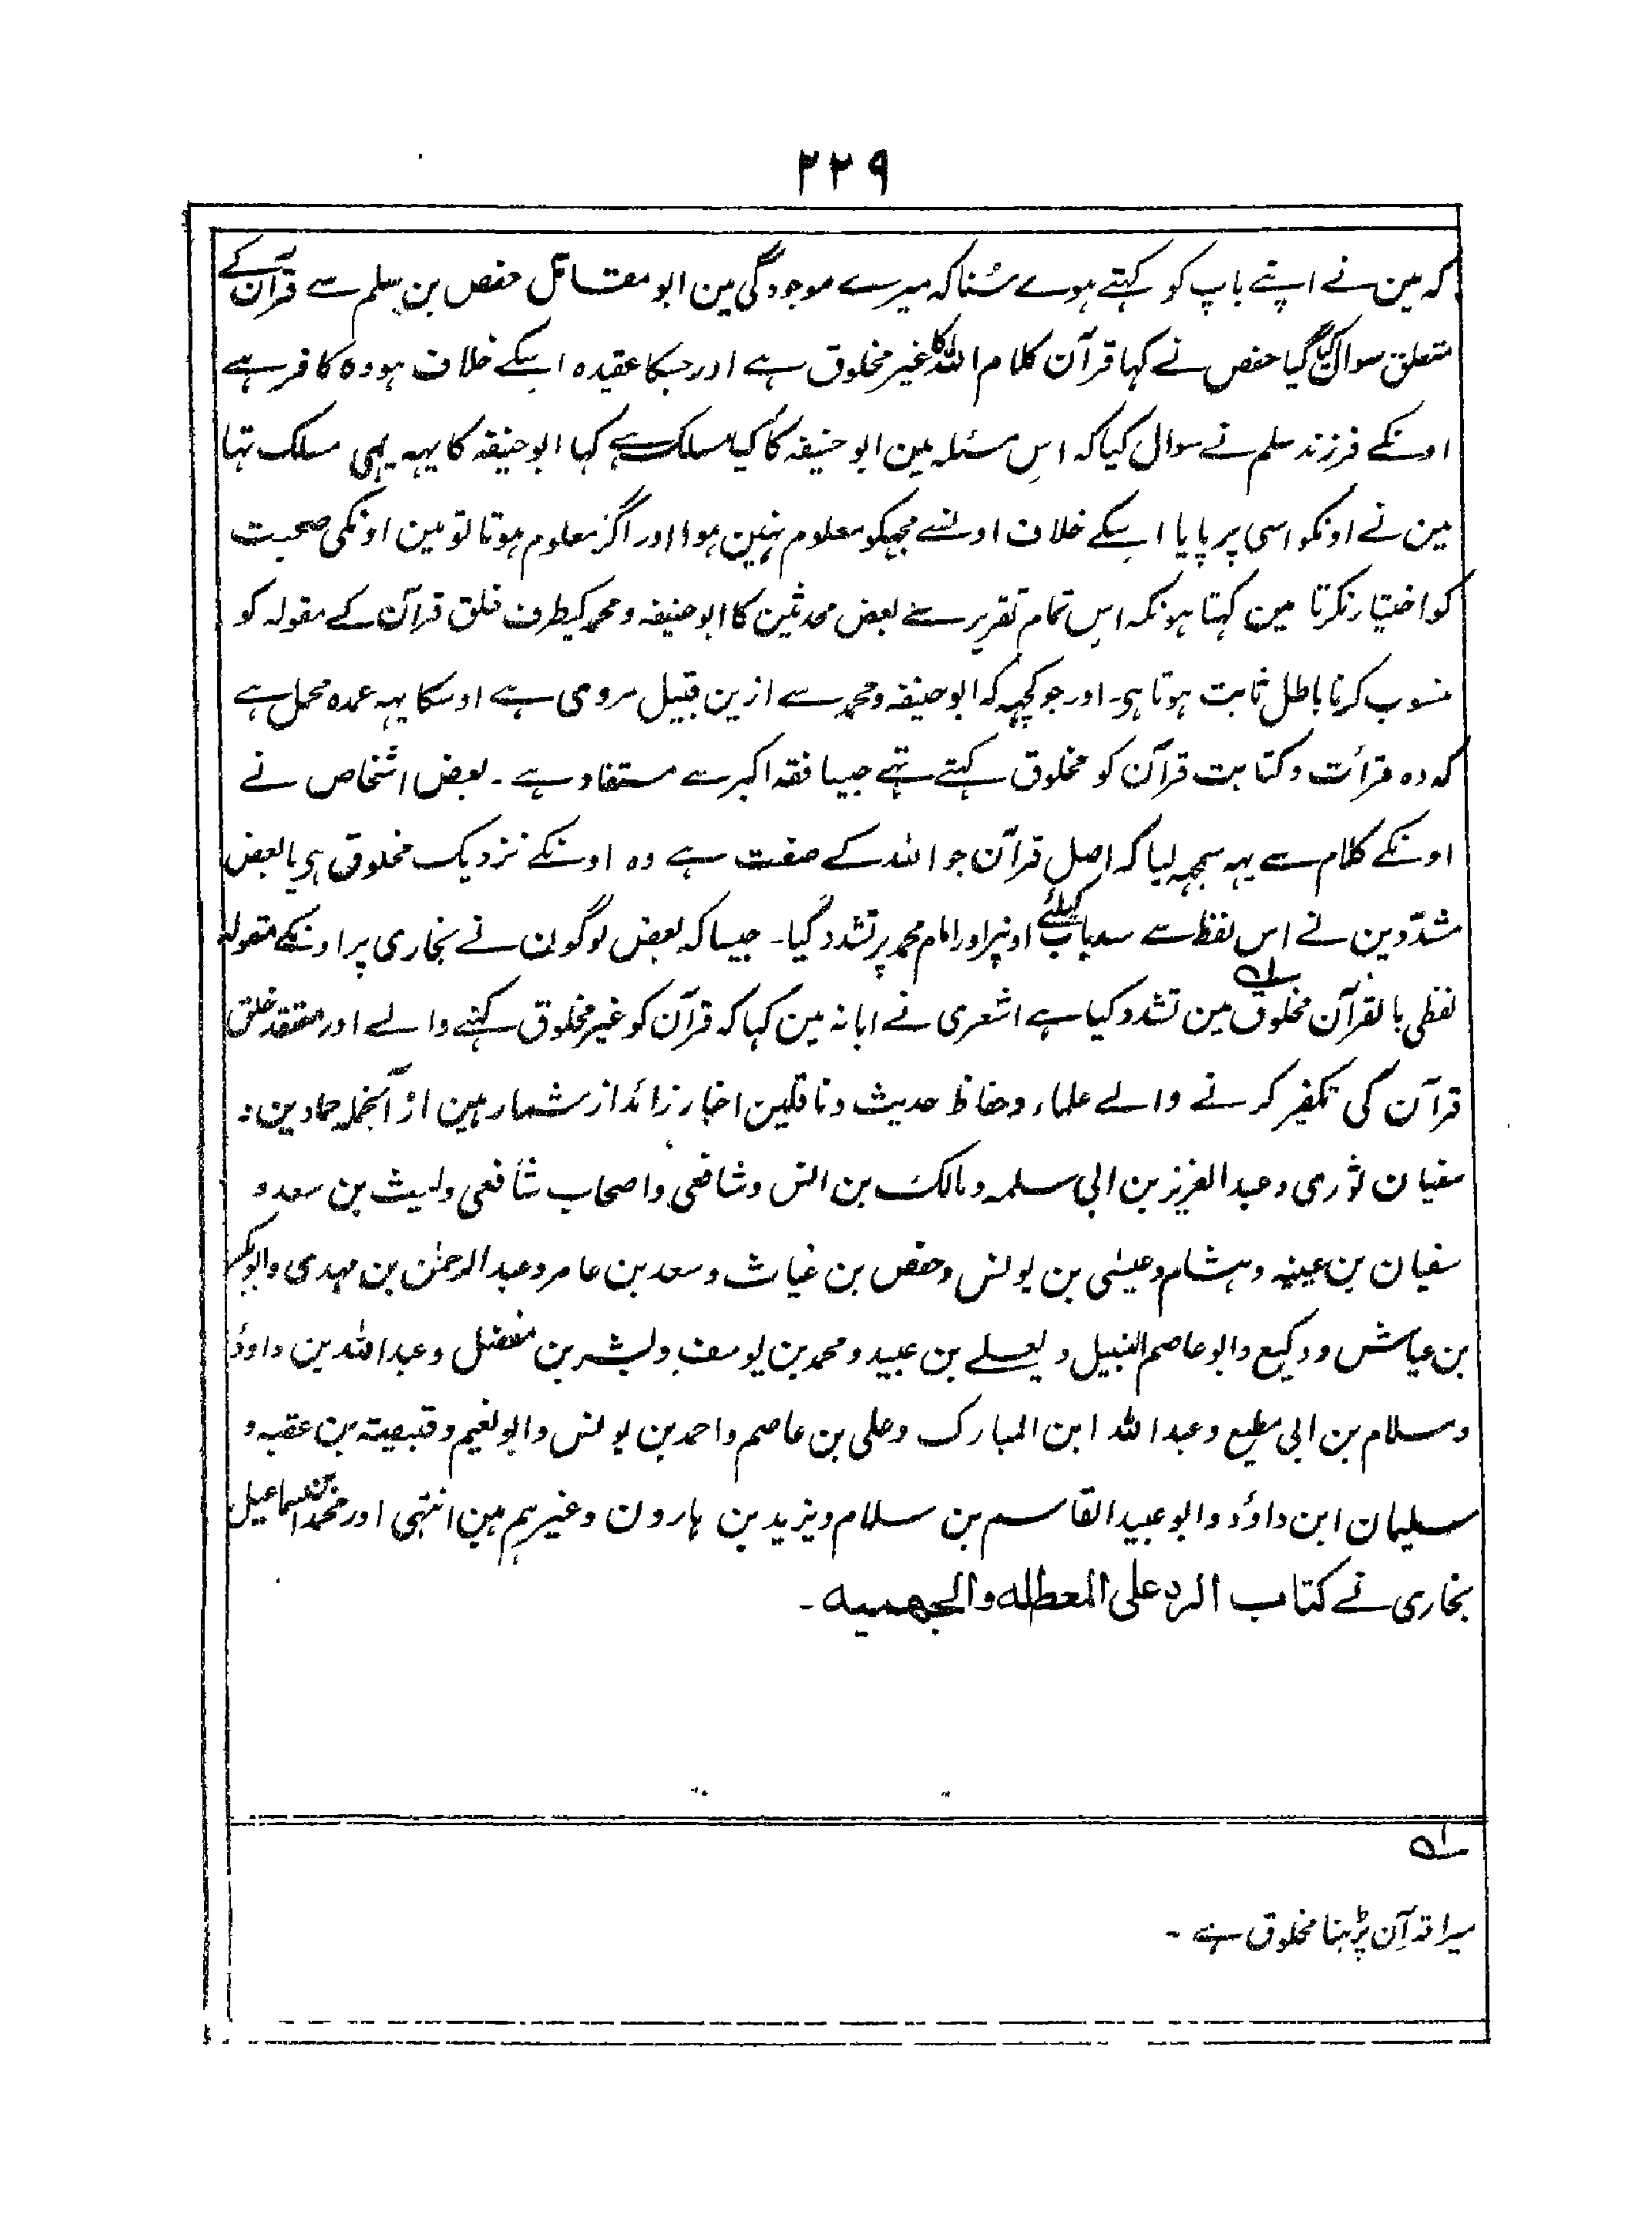 ۲۲۹
کہ مین نے اپنے باپ کو کہتے ہوے سُنا کہ میرے موجودگی مین ابو مقاتل حفص بن سلم سے قرآن کے
متعلق سوال کیا گیا حفص نے کہا قرآن کلام اللہ کا غیر مخلوق ہے اور جسکا عقیدہ اسکے خلاف ہو وہ کافر ہے
اونکے فرزند سلم نے سوال کیا کہ اس مسئلہ مین ابو حنیفہ کا کیا مسلک ہے کہا ابو حنیفہ کا یہہ ہی مسلک تہا
مین نے اونکو اسی پر پایا اسکے خلاف اونسے مجہکو معلوم نہین ہوا اور اگر معلوم ہوتا تو مین اونکی صحبت
کو اختیار نکرتا مین کہتا ہونکہ اس تمام تقریر سے بعض محدثین کا ابو حنیفہ و محمد کیطرف خلق قرآن کے مقولہ کو
منسوب کرنا باطل ثابت ہوتا ہی۔ اور جو کچہہ کہ ابو حنیفہ و محمد سے ازین قبیل مروی ہے اوسکا یہہ عمدہ محمل ہے
کہ وہ قرأت و کتابت قرآن کو مخلوق کہتے تہے جیسا فقہ اکبر سے مستفاد ہے ۔ بعض اشخاص نے
اونکے کلام سے یہہ سمجہہ لیا کہ اصل قرآن جو اللہ کے صفت ہے وہ اونکے نزدیک مخلوق ہی یا بعض
مشدّدین نے اس لفظ سے سدباب کیلئے اونپر اور امام محمد پر تشدد کیا۔ جیسا کہ بعض لوگون نے بخاری پر اونکے مقولہ
لفظی بالقرآن مخلوق ؎۱ مین تشدد کیا ہے اشعری نے ابانہ مین کہا کہ قرآن کو غیر مخلوق کہنے والے اور معتقد خلق
قرآن کی تکفیر کرنے والے علماء و حفاظ حدیث و ناقلین اخبار زائد از شمار ہین از آنجملہ حمادین و
سفیان ثوری و عبد العزیز بن ابی سلمہ و مالک بن انس و شافعی و اصحاب شافعی و لیث بن سعد و
سفیان بن عینیہ و ہشام و عیسٰی بن یونس و حفص بن غیاث و سعد بن عامر و عبد الرحمٰن بن مہدی و ابو بکر
بن عیاش و وکیع و ابو عاصم النبیل و یعلے بن عبید و محمد بن یوسف و بشر بن مفضل و عبد اللہ بن داوٗد
و سلام بن ابی مطیع و عبد اللہ ابن المبارک و علی بن عاصم و احمد بن یونس و ابو نعیم و قبیصتہ بن عقبہ و
سلیمان ابن داوٗد و ابو عبید القاسم بن سلام و یزید بن ہارون و غیرہم ہین انتہی اور محمد بن اسماعیل
بخاری نے کتاب الرد علی المعطلہ والجھمیہ ۔
؎۱
میرا قرآن پڑہنا مخلوق ہے ۔